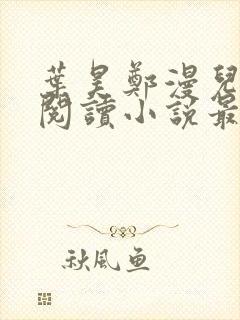 葉昊鄭漫兒
閱讀小說最
秋風魚